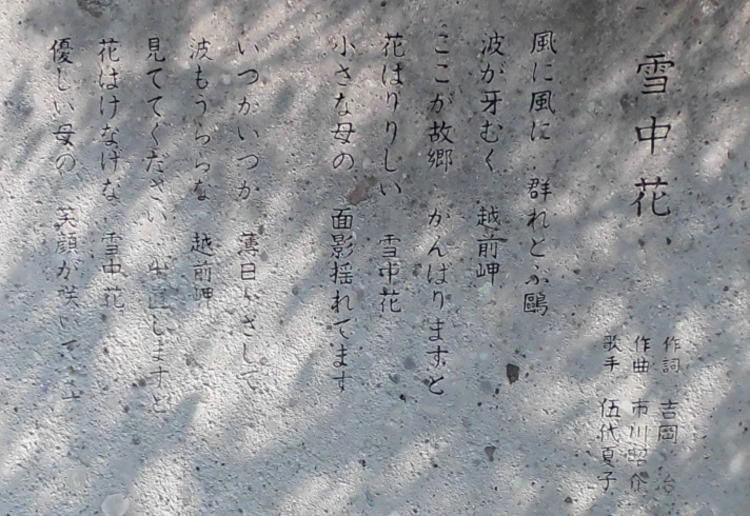 雪中花
作詞 吉岡 治
作曲 市川昭介
歌手 伍代夏子
風に風に 群れとぶ鷗
波が牙むく 越前岬
ここが故郷 がんばりますと
花はりりしい 雪中花
小さな母の 面影揺れてます
いつかいつか 薄日がさして
波もうららな 越前岬
見ててください 出直しますと
花はけなげな 雪中花
優しい母の 笑顔が咲いてます